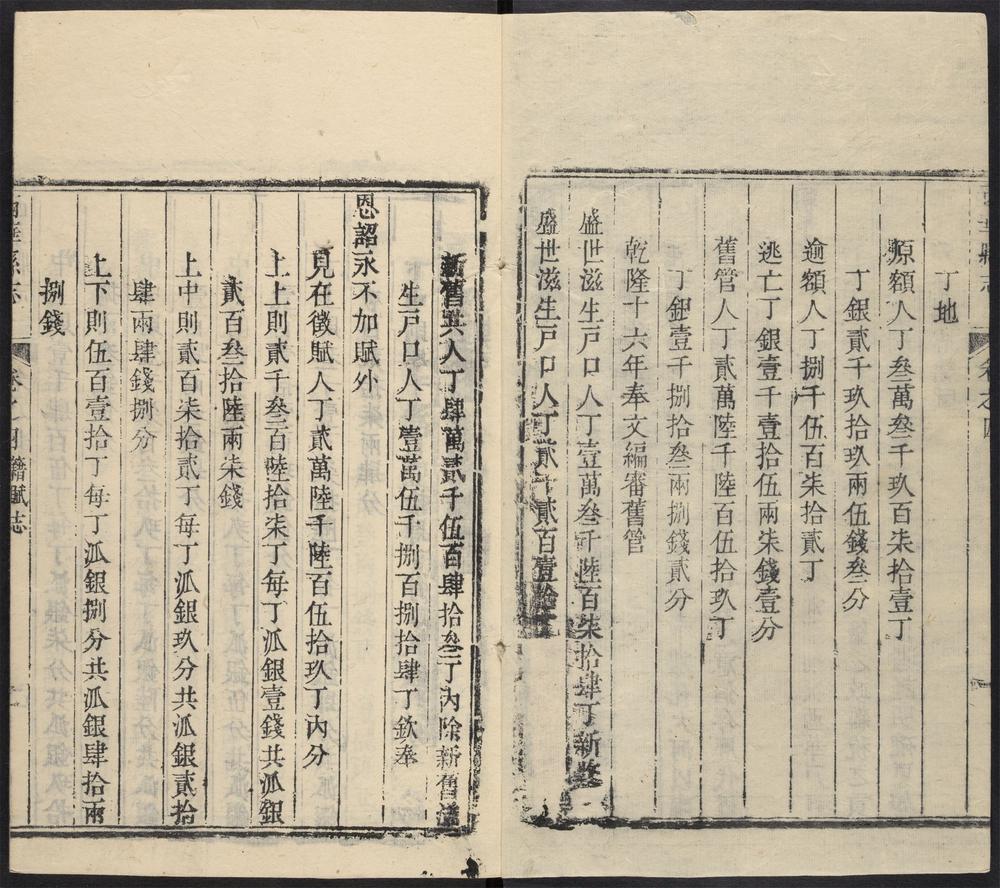 丁地
原額人丁叁萬叁千玖百柒拾壹丁
丁銀貳千玖拾玖兩伍錢叁分
逾額人丁捌千伍百柒拾貳丁
逃亡丁銀壹千壹拾伍兩柒錢壹分
舊管人丁貳萬陸千陸百伍拾玖丁
丁銀壹千捌拾叁兩捌錢貳分
乾隆十六年奉文編審舊管
盛世滋生戸口人丁壹萬叁千陸百柒拾肆丁新
盛世滋生戸口人丁貳千貳百壹拾
新舊共人丁肆萬貳千伍百肆拾叁丁內除新舊滋
生戸口人丁壹萬伍千捌百捌拾肆丁欽奉
恩詔永不加賦外
見在徵賦人丁貳萬陸千陸百伍拾玖丁內分
上上則貳千叁百陸拾柒丁每丁派銀壹錢共派銀
貳百叁拾陸兩柒錢
上中則貳百柒拾貳丁每丁派銀玖分共派銀貳拾
肆兩肆錢捌分
上下則伍百壹拾丁每丁派銀捌分共派銀肆拾兩
捌錢
卷之四 籍賦志